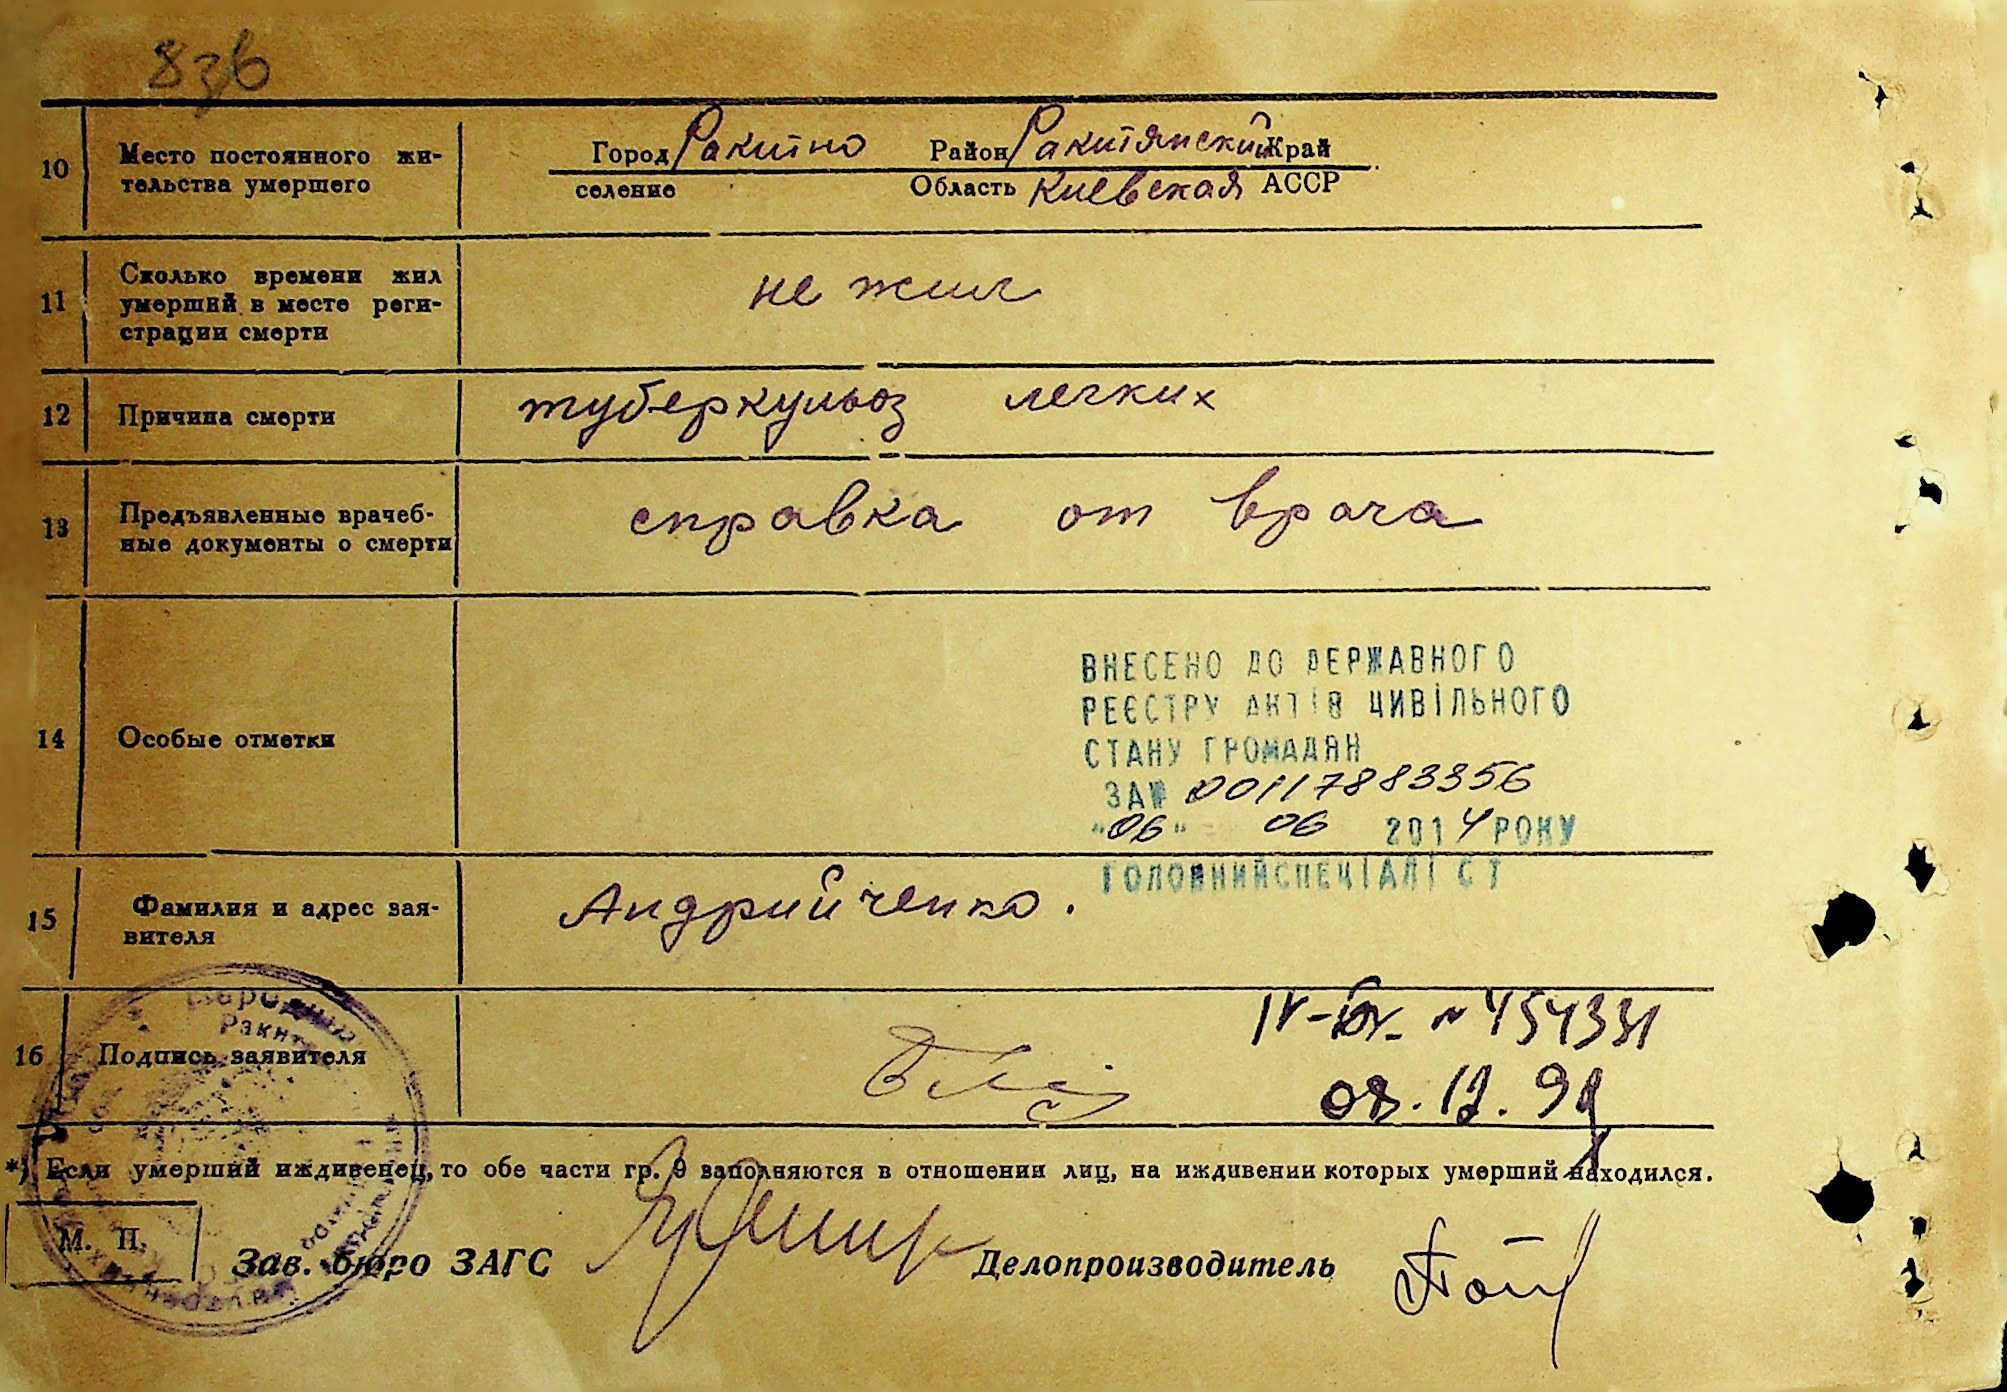 836
10 Место постоянного жи-
тельства умершего
Город Ракитно Район Ракитянский Край
селение Область Киевская АССР
11 Сколько времени жил
умерший в месте реги-
страции смерти
не жил
12 Причина смерти туберкульоз легких
13 Предъявленные врачеб-
ные документы о смерти
справка от врача
14 Особые отметки
ВНЕСЕНО ДО ДЕРЖАВНОГО
РЕЄСТРУ АКТІВ ЦИВІЛЬНОГО
СТАНУ ГРОМАДЯН
ЗА№ 00117883356
"06" 06 2014 РОКУ
ГОЛОВНИЙСПЕЦІАЛІСТ
15 Фамилия и адрес зая-
вителя
Андрийченко.
16 Подпись заявителя
*) Если умерший иждивенец, то обе части гр. 9 заполняются в отношении лиц, на иждивении которых умерший находился.
М. П.
Зав. бюро ЗАГС Делопроизводитель